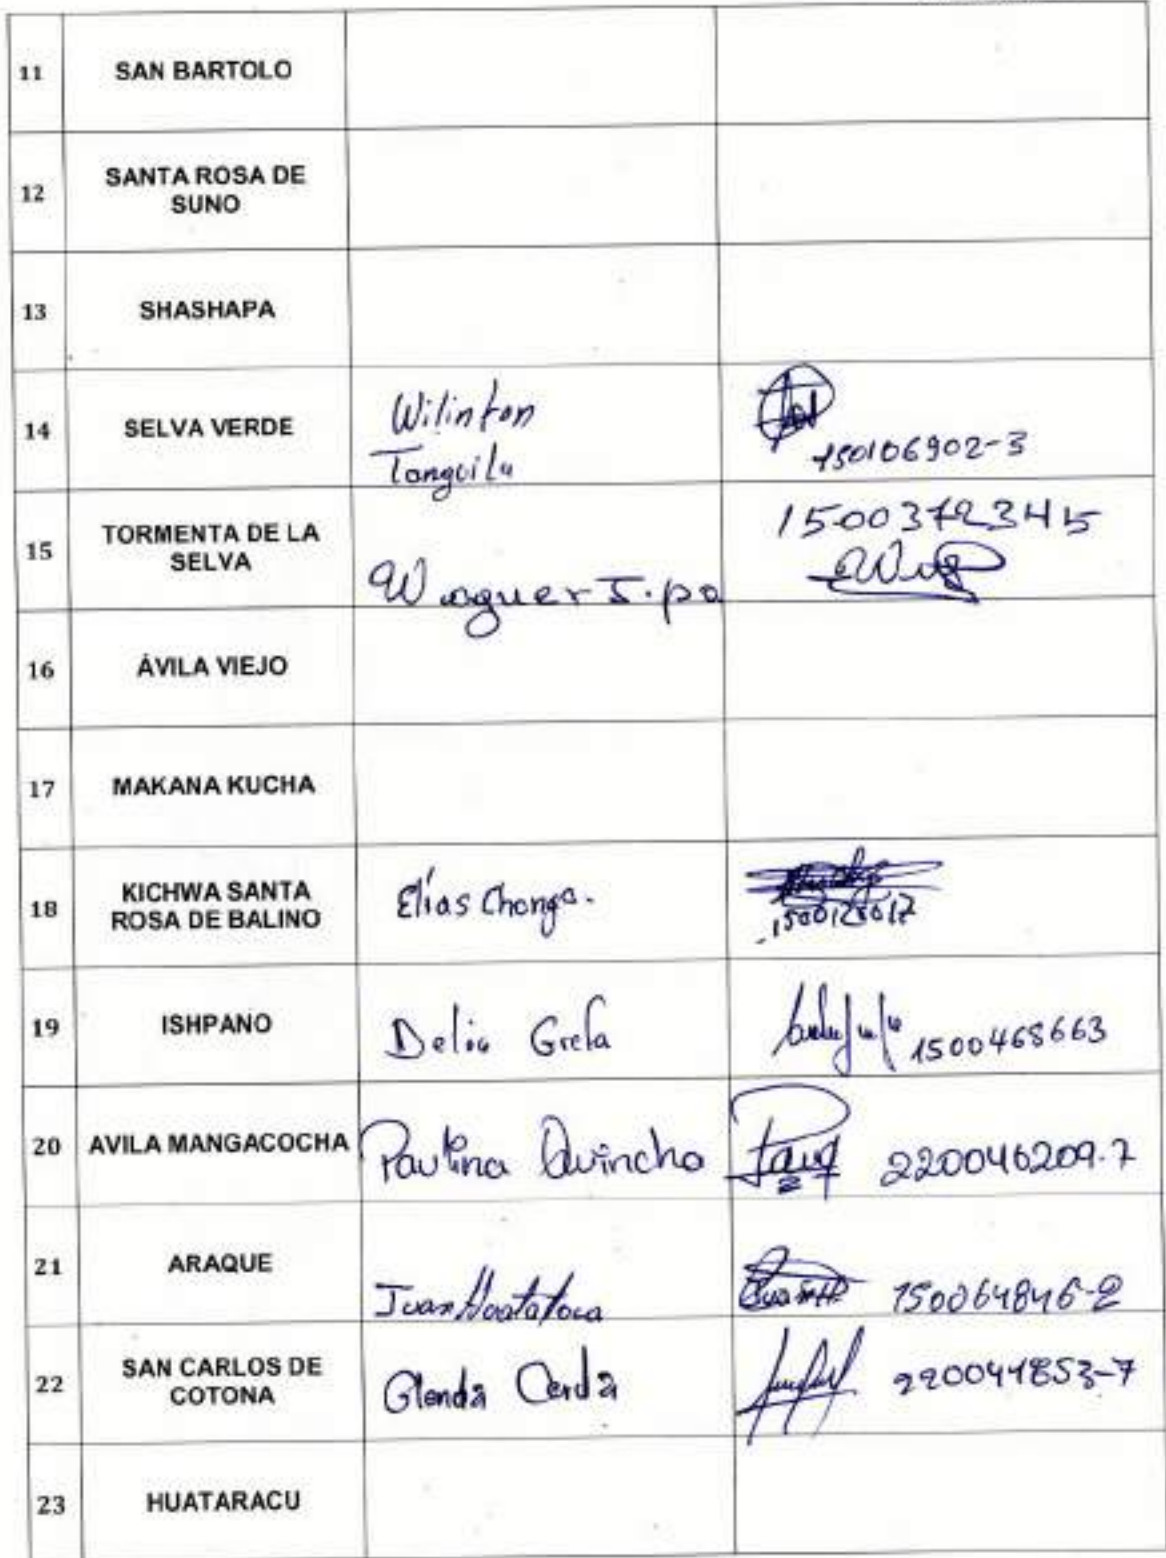 11 SAN BARTOLO
12 SANTA ROSA DE
SUNO
13 SHASHAPA
14 SELVA VERDE Wilinton
Tanguila 150106902-3
15 TORMENTA DE LA
SELVA Waguer 
16 ÁVILA VIEJO
17 MAKANA KUCHA
18 KICHWA SANTA
ROSA DE BALINO Elías Chongo.
19 ISHPANO Delia Grefa 1500468663
20 AVILA MANGACOCHA Paulina Quincha 220046209-7
21 ARAQUE Juan Huatatoca 150064846-2
22 SAN CARLOS DE
COTONA Glenda Cerda 220041853-7
23 HUATARACU